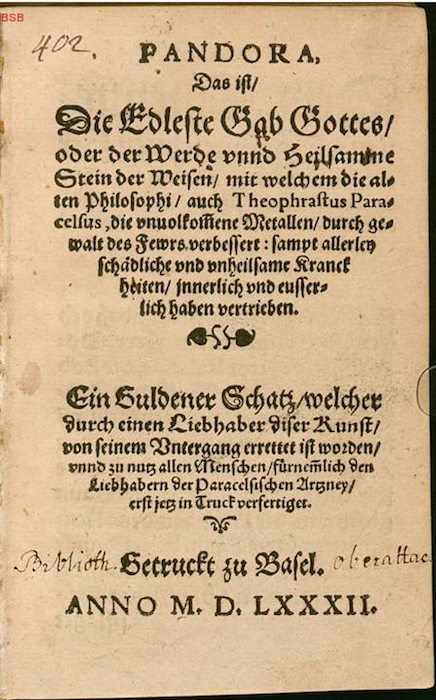 BSB
402.
PANDORA,
Das ist/
Die Edleste Gab Gottes/
oder der Werde vnnd Heilsamme
Stein der Weisen/ mit welchem die al-
ten Philosophi/ auch Theophrastus Para-
celsus, die vnuolkom̃ene Metallen/ durch ge-
walt des Fewrs verbessert: sampt allerley
schädliche vnd vnheilsame Kranck
heiten/ jnnerlich vnd eusser-
lich haben vertrieben.
Ein Guldener Schatz/welcher
durch einen Liebhaber diser Kunst/
von seinem Vntergang errettet ist worden/
vnnd zu nutz allen Menschen/fürnem̃lich den
Liebhabern der Paracelsischen Artzney/
erst jetz in Truck verfertiget.
Biblioth. Getruckt zu Basel.
ANNO M. D. LXXXII.